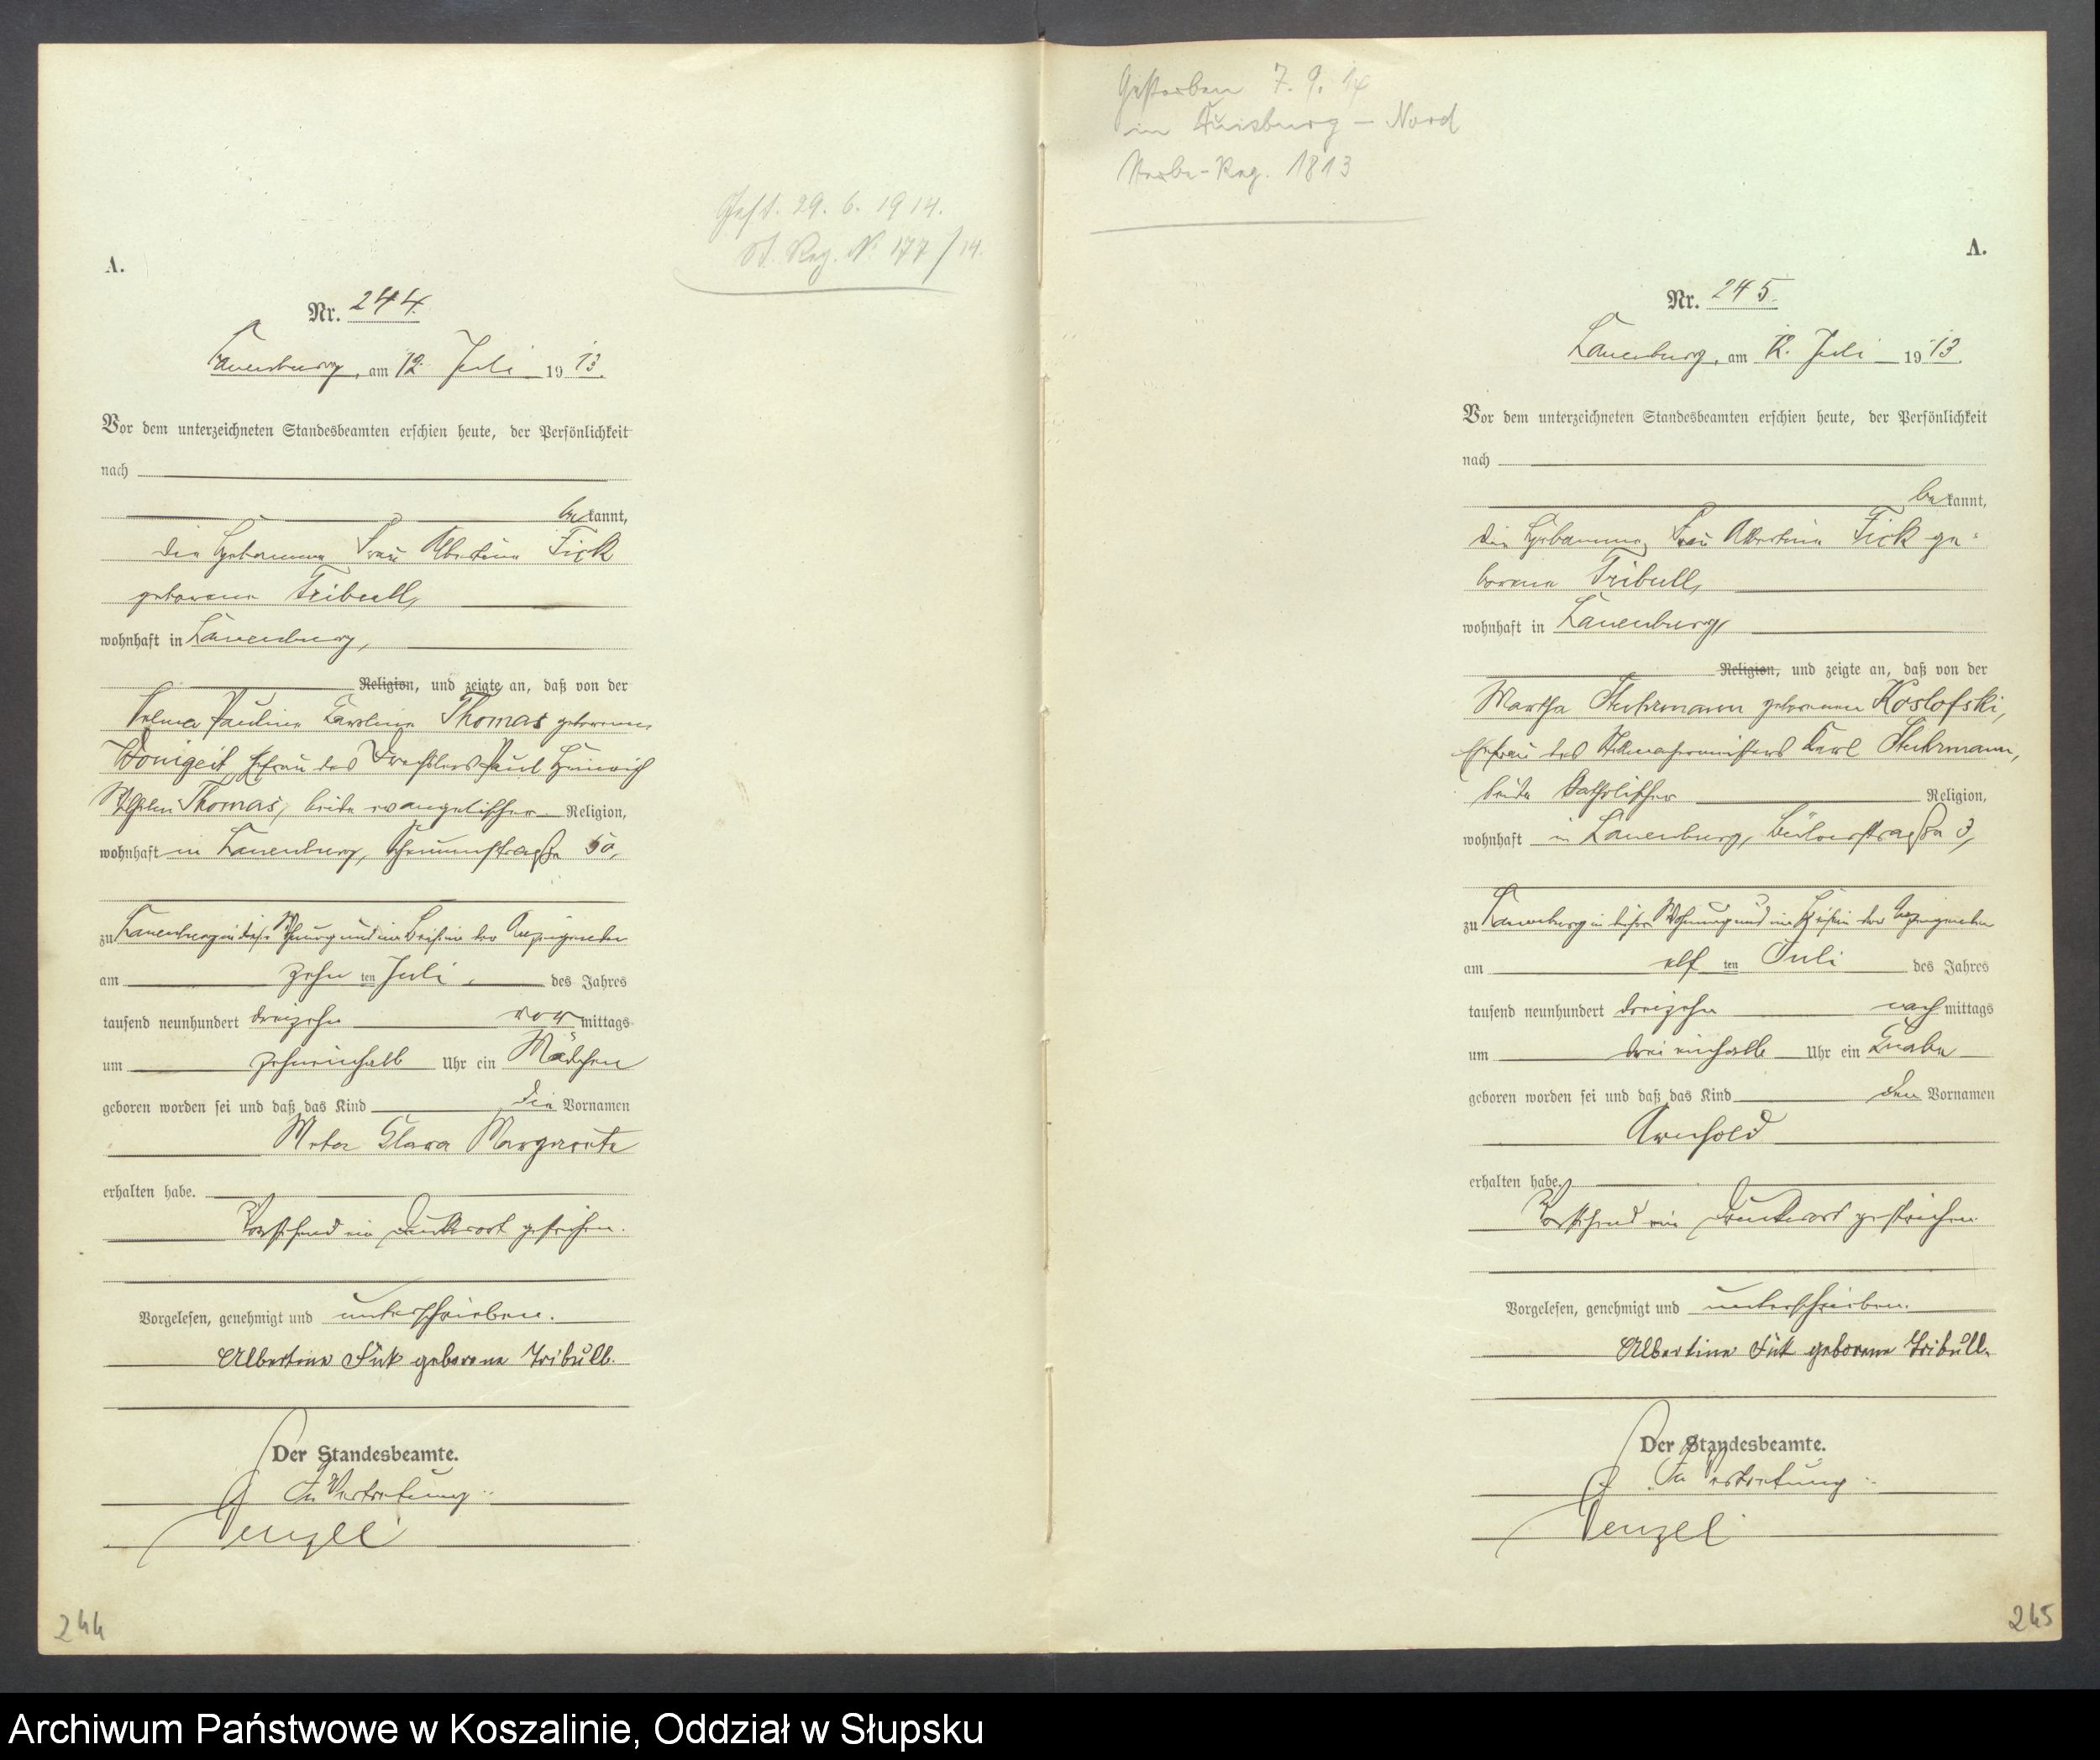 Gest. 29. 6. 1914.
St. Reg. Nº 177/14.
A.
Nr. 244.
Lauenburg, am 12. Juli 1913.
Vor dem unterzeichneten Standesbeamten erschien heute, der Persönlichkeit
nach
bekannt,
die Hebamme Frau Albertine Fick
geborene Tribull,
wohnhaft in Lauenburg,
Religion, und zeigte an, daß von der
Pauline Karoline Thomas geborenen
Wonigeit, Ehefrau des Drechslers Paul Heinrich
Wilhelm Thomas, beide evangelischer Religion,
wohnhaft in Lauenburg, 50,
zu Lauenburg in dieser Wohnung und im Beisein der Anzeigenden
am zehn ten Juli des Jahres
tausend neunhundert dreizehn vor mittags
um zehneinhalb Uhr ein Mädchen
geboren worden sei und daß das Kind die Vornamen
Meta Clara Margarete
erhalten habe.
Vorstehend ein Druckwort gestrichen.
Vorgelesen, genehmigt und unterschrieben.
Albertine Fick geborene Tribull.
Der Standesbeamte.
In Vertretung:
Wenzel
244
Gestorben 7. 9.
in Duisburg – Nord
Sterbe-Reg. 1813
A.
Nr. 245.
Lauenburg, am 12. Juli 1913.
Vor dem unterzeichneten Standesbeamten erschien heute, der Persönlichkeit
nach
bekannt,
die Hebamme, Frau Albertine Fick ge-
borene Tribull,
wohnhaft in Lauenburg,
Religion, und zeigte an, daß von der
Martha Stuhrmann geborenen Koslofski,
Ehefrau des Karl Stuhrmann,
beide katholischer Religion,
wohnhaft in Lauenburg, Bülowstraße 3,
zu Lauenburg in dieser Wohnung und im Beisein der Anzeigenden
am elf ten Juli des Jahres
tausend neunhundert dreizehn nach mittags
um dreieinhalb Uhr ein Knabe
geboren worden sei und daß das Kind den Vornamen
Arnhold
erhalten habe.
Vorstehend ein Druckwort gestrichen.
Vorgelesen, genehmigt und unterschrieben.
Albertine Fick geborene Tribull.
Der Standesbeamte.
In Vertretung:
Wenzel
245
Archiwum Państwowe w Koszalinie, Oddział w Słupsku